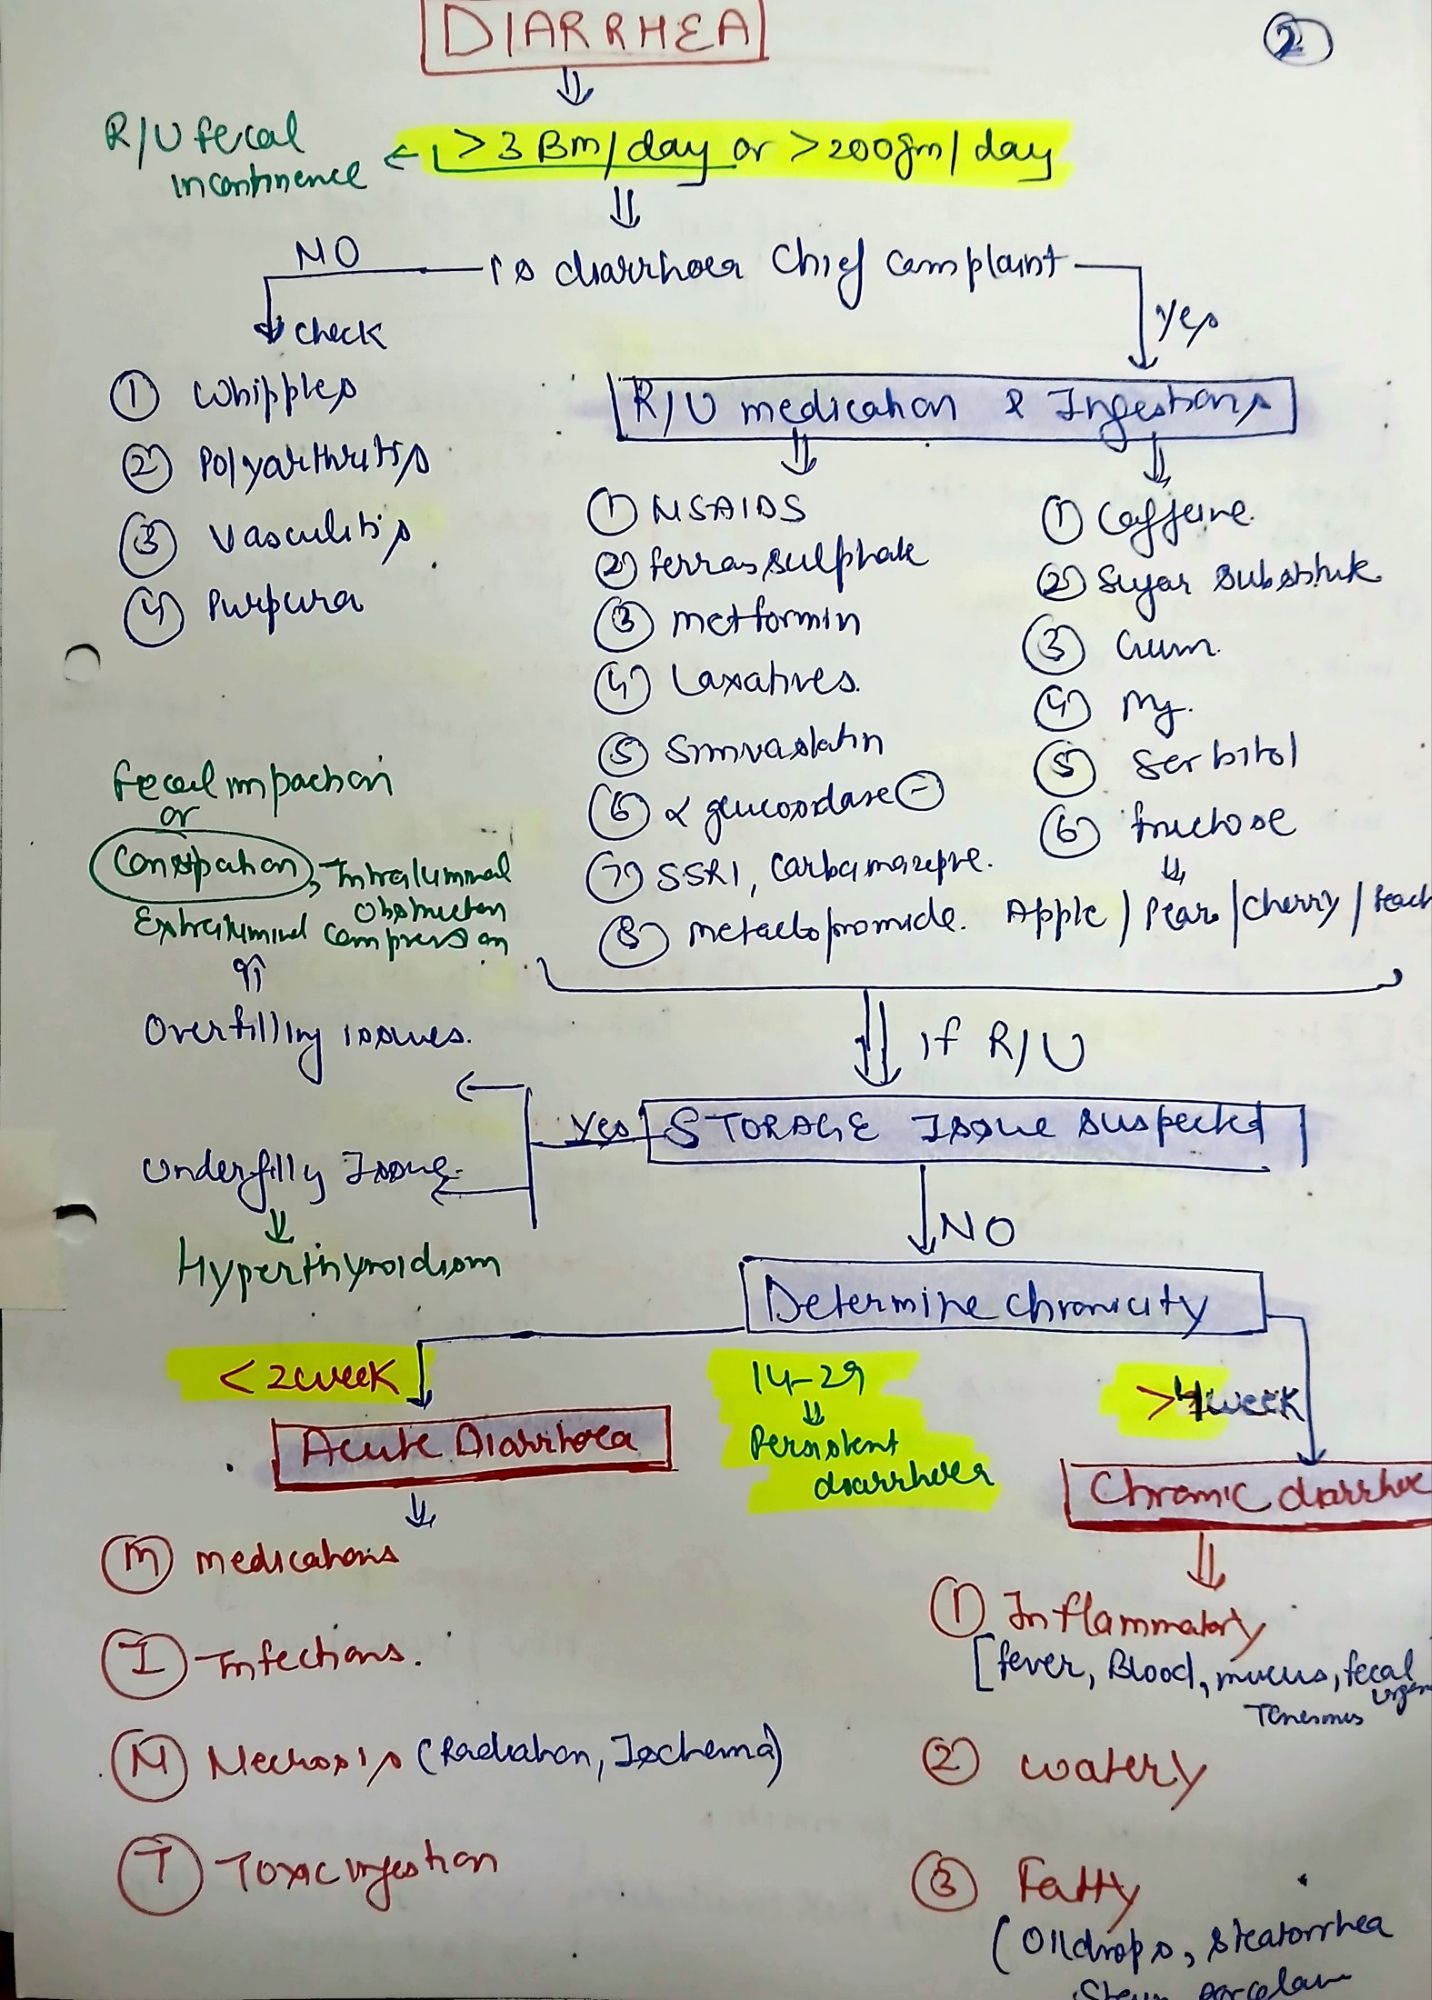 DIARRHEA
2
R/U fecal
incontinence
>3 Bm/day or >200gm/day
NO
is diarrhoea Chief Complaint
Yes
Check
① Whipples
② Polyarthritis
③ Vasculitis
④ Purpura
R/U medication & Ingestions
① NSAIDS
② ferras sulphate
③ metformin
④ Laxatives.
⑤ Simvastatin
⑥ α glucosidase ⊖
⑦ SSRI, Carbamazepine.
⑧ metaclopromide.
① Caffeine.
② Sugar Substitute
③ Gum.
④ Mg.
⑤ Sorbitol
⑥ fructose
Apple / Pear / Cherry / Peach
fecal impaction
or
Constipation, Intraluminal
Obstruction
Extraluminal compression
Overfilling issues.
if R/U
Yes
STORAGE Issue suspected
Underfilly Issue.
Hyperthyroidism
NO
Determine chronicity
<2week
14-29
Persistent
diarrhoea
>4week
Acute Diarrhoea
Chronic diarrhoe
M medications
I Infections.
N Necrosis (Radiation, Ischemia)
T Toxic ingestion
① Inflammatory
[fever, Blood, mucus, fecal
Tenesmus
② Watery
③ Fatty
(Oil drops, Steatorrhea